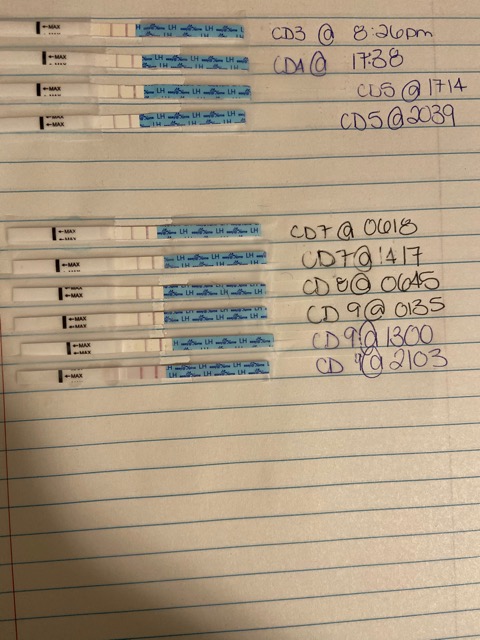 ←MAX LH LH LH CD3 @ 8:26pm
←MAX LH LH LH CD4 @ 1738
←MAX LH LH LH CD5 @ 1714
←MAX LH LH LH CD5 @ 2039
←MAX LH LH LH CD7 @ 0618
←MAX LH LH LH CD7 @ 1417
←MAX LH LH LH CD 8 @ 0645
←MAX LH LH LH CD 9 @ 0135
←MAX LH LH LH CD 9 @ 1300
←MAX LH LH LH CD 9 @ 2103